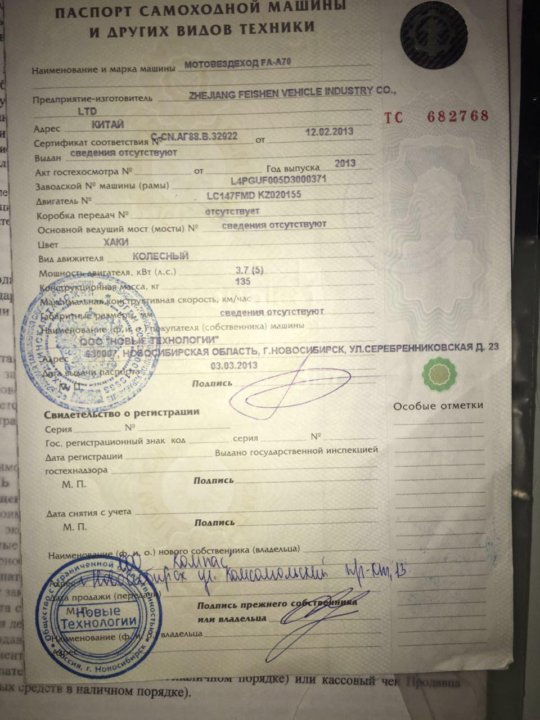 ПАСПОРТ САМОХОДНОЙ МАШИНЫ
И ДРУГИХ ВИДОВ ТЕХНИКИ
Наименование и марка машины МОТОВЕЗДЕХОД FA-A70
Предприятие-изготовитель ZHEJIANG FEISHEN VEHICLE INDUSTRY CO.,
LTD
ТС 682768
Адрес КИТАЙ
Сертификат соответствия № C-CN.АГ88.В.32922 от 12.02.2013
Выдан сведения отсутствуют
Акт гостехосмотра № от Год выпуска 2013
Заводской № машины (рамы) L4PGUF005D3000371
Двигатель № LC147FMD KZ020155
Коробка передач № отсутствует
Основной ведущий мост (мосты) № сведения отсутствуют
Цвет ХАКИ
Вид движителя КОЛЕСНЫЙ
Мощность двигателя, кВт (л.с.) 3.7 (5)
Конструкционная масса, кг 135
Максимальная конструктивная скорость, км/час
Габаритные размеры, мм сведения отсутствуют
Наименование (ф. и. о.) покупателя (собственника) машины
ООО "НОВЫЕ ТЕХНОЛОГИИ"
Адрес 630007, НОВОСИБИРСКАЯ ОБЛАСТЬ, Г.НОВОСИБИРСК, УЛ.СЕРЕБРЕННИКОВСКАЯ Д. 23
Дата выдачи паспорта 03.03.2013
Подпись
Свидетельство о регистрации
Особые отметки
Серия №
Гос. регистрационный знак код серия №
Дата регистрации Выдано государственной инспекцией
гостехнадзора
М. П. Подпись
Дата снятия с учета
М. П. Подпись
Наименование (ф. и. о.) нового собственника (владельца)
ООО Компас
Адрес г. Новосибирск ул. Комсомольский пр-кт, 13
Дата продажи (передачи)
М.П. Подпись прежнего собственника
или владельца
Новые
Технологии
Общество с ограниченной ответственностью
Россия, г. Новосибирск
Наименование (ф. и. о.) владельца
наличном порядке) или кассовый чек Продавца
ых средств в наличном порядке).